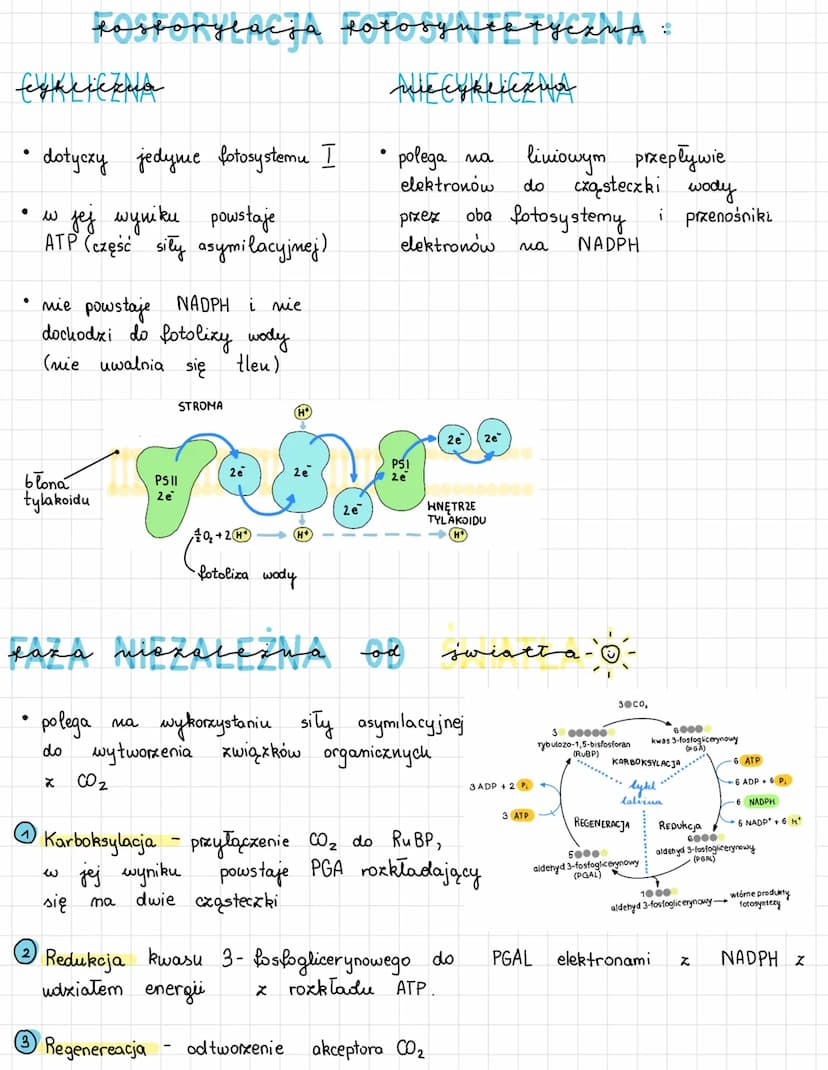 FOSFORYLACJA FOTOSYNTETYCZNA :
CYKLICZNA
• dotyczy jedynie fotosystemu I
• w jej wyniku powstaje
ATP (część siły asymilacyjnej)
• nie powstaje NADPH i nie
dochodzi do fotolizy wody
(nie uwalnia się tlen)
NIECYKLICZNA
• polega na liniowym przepływie
elektronów do cząsteczki wody
przez oba fotosystemy i przenośniki
elektronów na NADPH
STROMA
H⁺
błona
tylakoidu
PSII
2e⁻
2e⁻
2e⁻
2e⁻
PSI
2e⁻
2e⁻
2e⁻
WNĘTRZE
TYLAKOIDU
½O₂ + 2 H⁺
H⁺
H⁺
fotoliza wody
FAZA NIEZALEŻNA OD ŚWIATŁA
• polega na wykorzystaniu siły asymilacyjnej
do wytworzenia związków organicznych
z CO₂
① Karboksylacja – przyłączenie CO₂ do RuBP,
w jej wyniku powstaje PGA rozkładający
się na dwie cząsteczki
3 CO₂
3
rybulozo-1,5-bisfosforan
(RuBP)
6
kwas 3-fosfoglicerynowy
(PGA)
KARBOKSYLACJA
6 ATP
6 ADP + 6 Pᵢ
6 NADPH
6 NADP⁺ + 6 H⁺
cykl
Calvina
3 ADP + 2 Pᵢ
3 ATP
REGENERACJA
REDUKCJA
6
aldehyd 3-fosfoglicerynowy
(PGAL)
5
aldehyd 3-fosfoglicerynowy
(PGAL)
1
aldehyd 3-fosfoglicerynowy
wtórne produkty
fotosyntezy
② Redukcja kwasu 3-fosfoglicerynowego do PGAL elektronami z NADPH z
udziałem energii z rozkładu ATP.
③ Regenereacja – odtworzenie akceptora CO₂